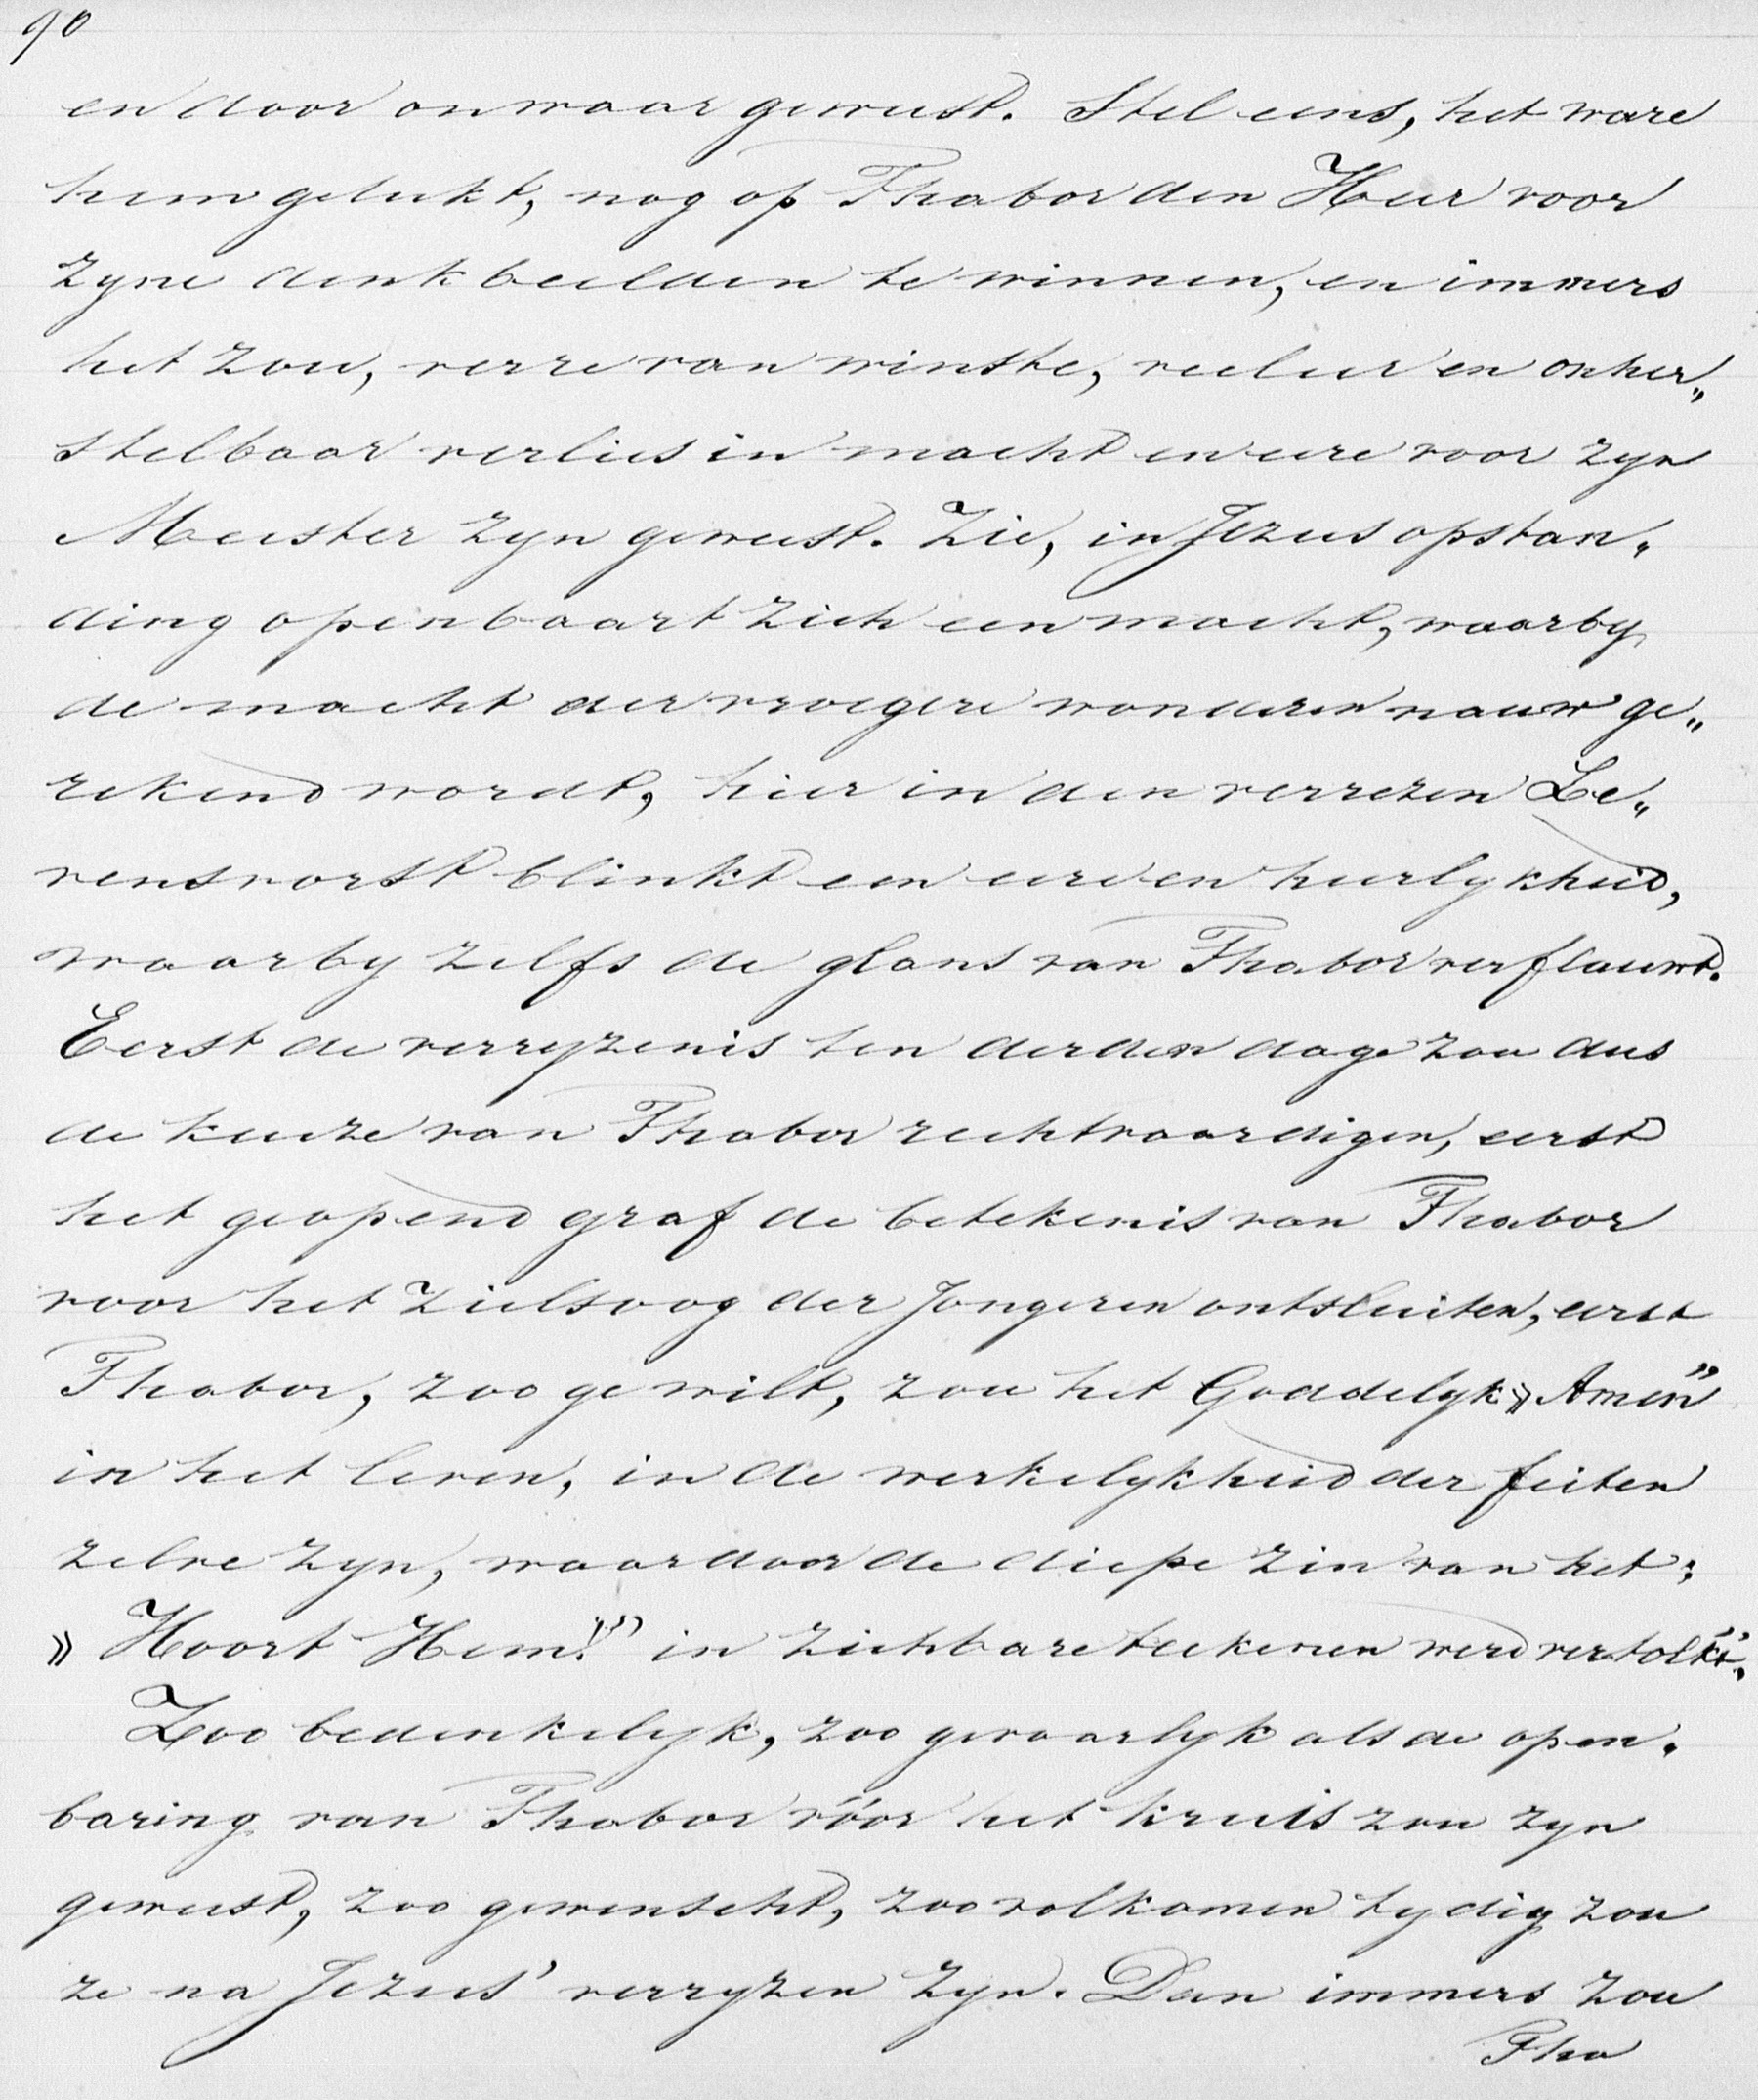 90
en door onwaar geweest. Stel eens, het ware
hem gelukt, nog op Thabor den Heer voor
zyne denkbeelden te winnen, en immers
het zou, verre van winste, veeleer en onher„
stelbaar verlies in macht en eere voor zyn
Meester zyn geweest. Zie, in Jezus opstan„
ding openbaart zich een macht, waarby
de macht der vroegere wonderen nauw ge„
rekend wordt, hier in den verrezen Le„
vensvorst blinkt een eere en heerlykheid,
waarby zelfs de glans van Thabor verflauwt.
Eerst de verryzenis ten derden dage zou dus
de keuze van Thabor rechtvaardigen, eerst
het geopend graf de betekenis van Thabor
voor het zielsoog der Jongeren ontsluiten, eerst
Thabor, zoo ge wilt, zou het Goddelyk » Amen”
in het leven, in de werkelykheid der feiten
zelve zyn, waardoor de diepe zin van het:
» Hoort Hem!” in zichtbare teekenen werd vertolkt.”
Zoo bedenkelyk, zoo gevaarlyk als de open„
baring van Thabor vóór het kruis zou zyn
geweest, zoo gewenscht, zoo volkomen tydig zou
ze na Jezus' verryzen zyn. Dan immers zou
Tha